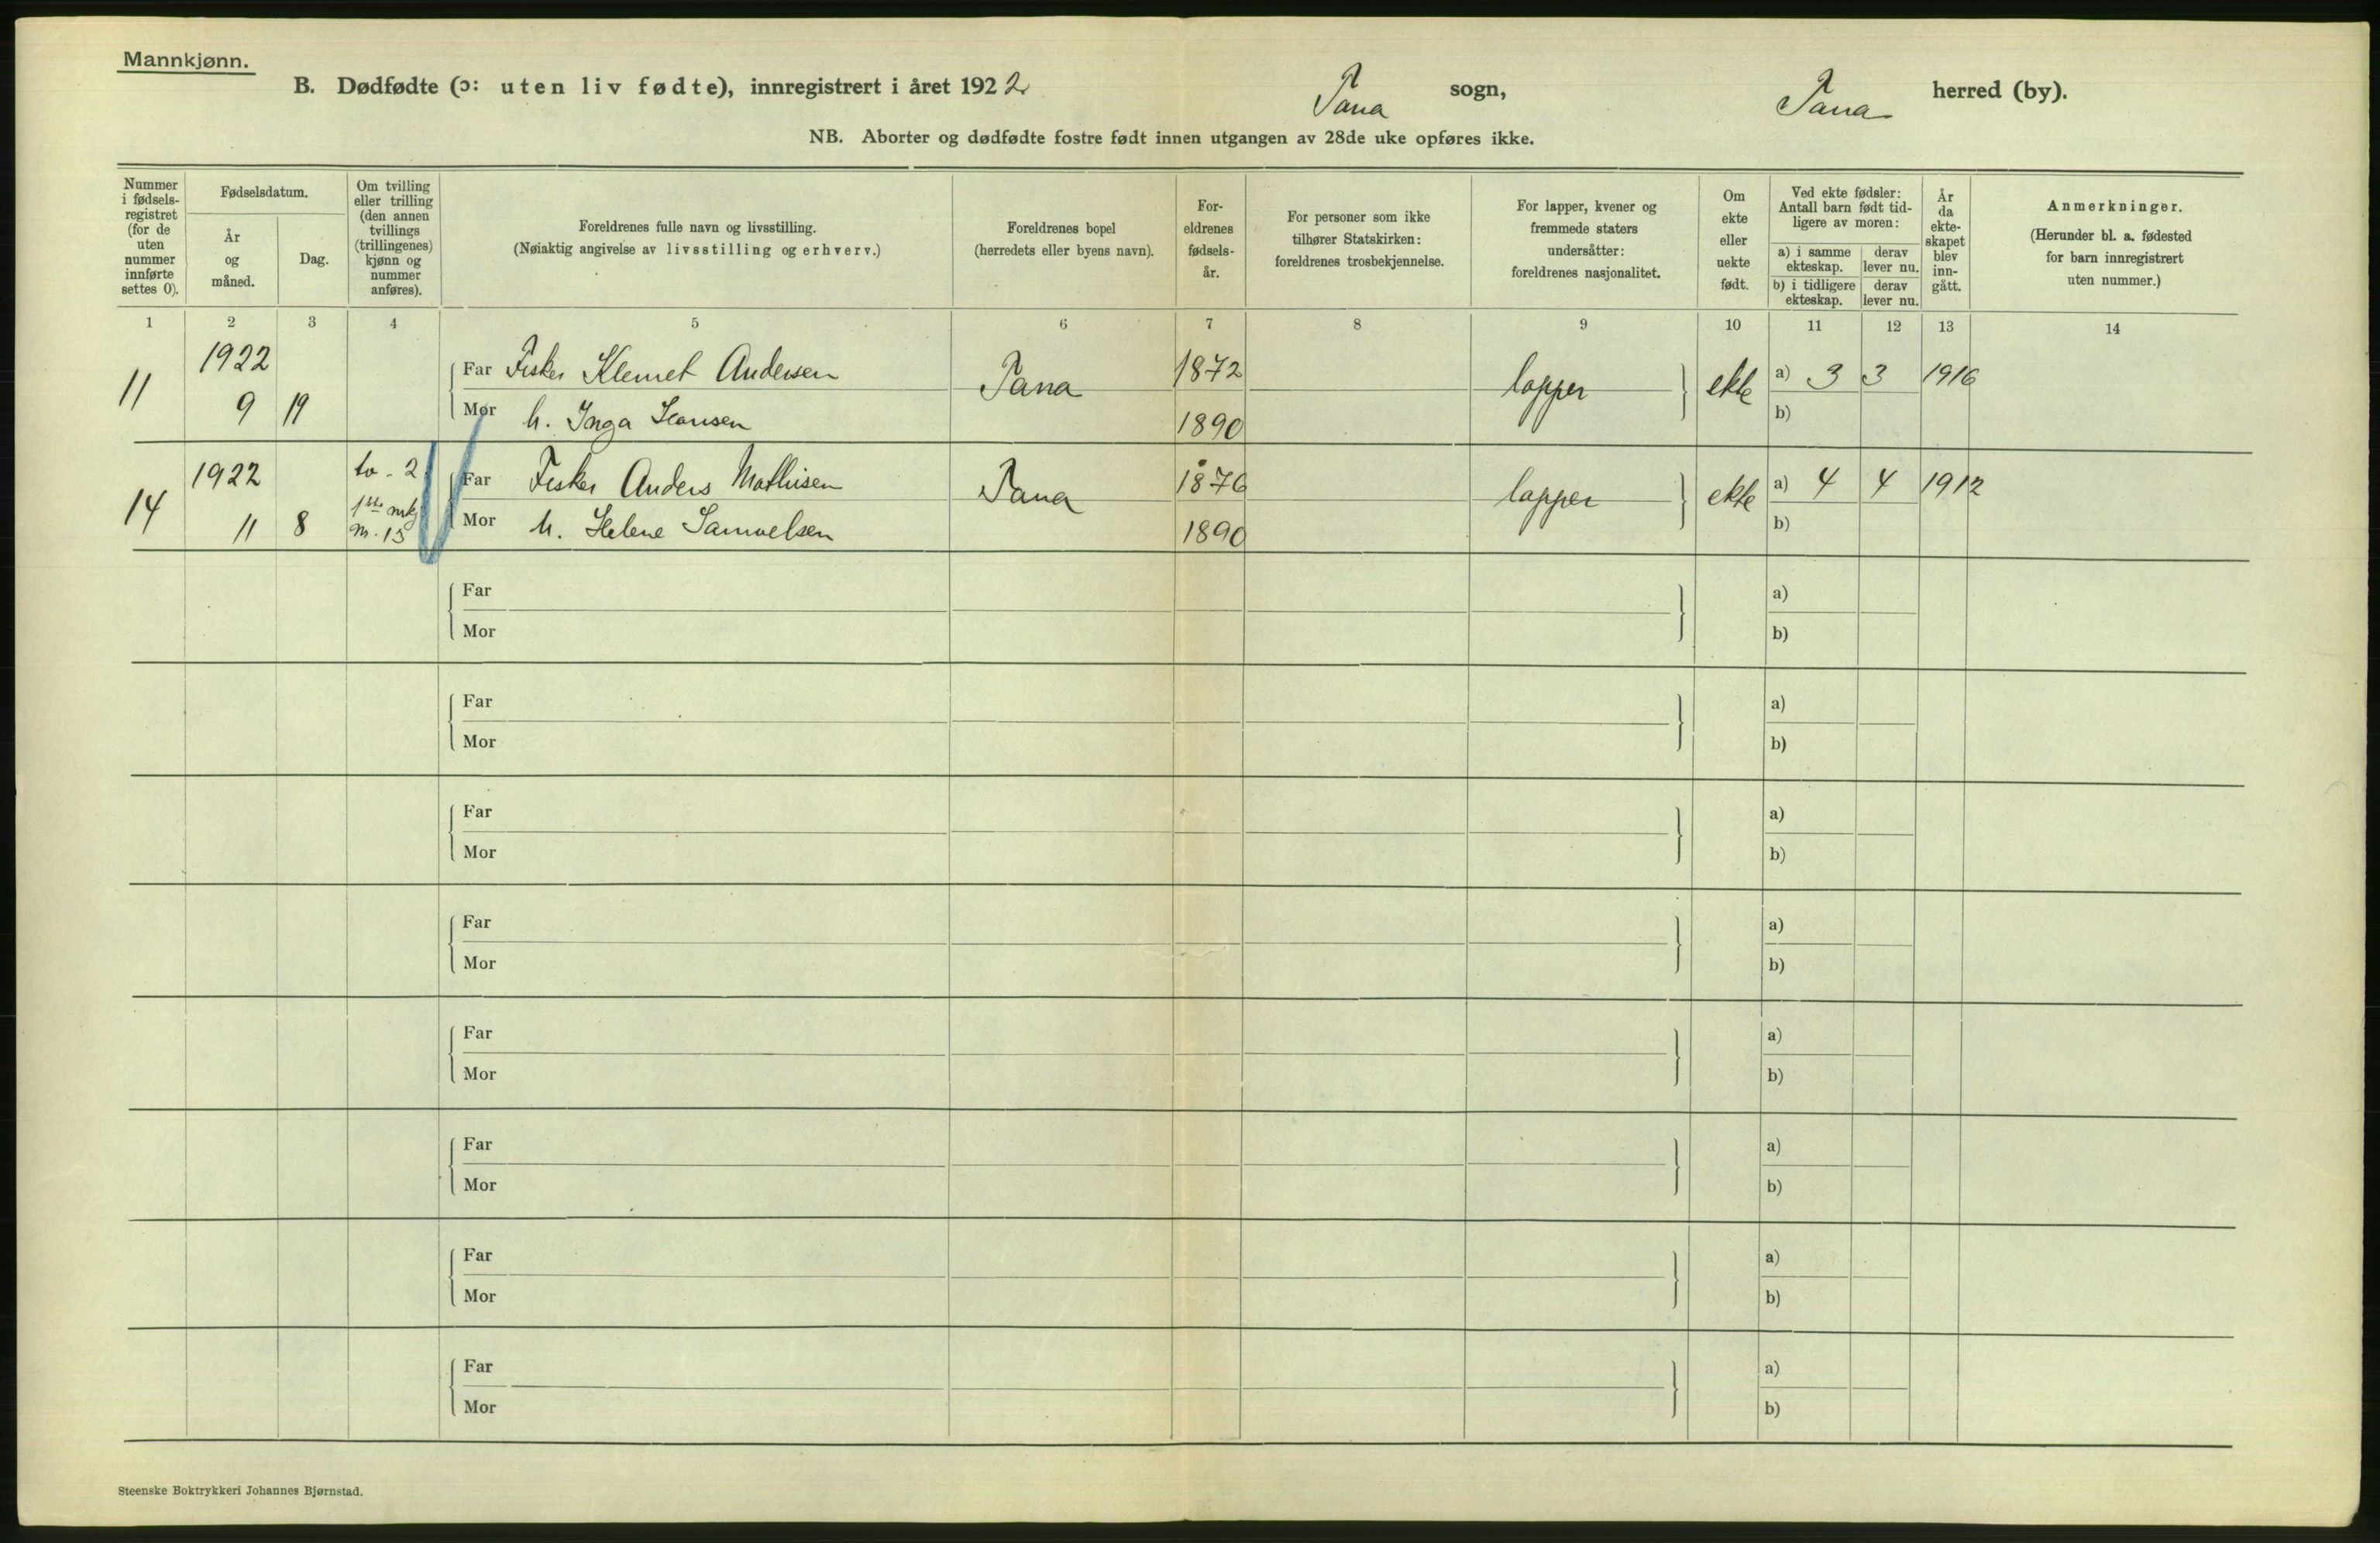 Mannkjønn.
B. Dødfødte (ɔ: uten liv fødte), innregistrert i året 1922 Tana sogn, Tana herred (by).
NB. Aborter og dødfødte fostre født innen utgangen av 28de uke opføres ikke.
Nummer
i fødsels-
registret
(for de
uten
nummer
innførte
settes 0).
Fødselsdatum.
År
og
måned.
Dag.
Om tvilling
eller trilling
(den annen
tvillings
(trillingenes)
kjønn og
nummer
anføres).
Foreldrenes fulle navn og livsstilling.
(Nøiaktig angivelse av livsstilling og erhverv.)
Foreldrenes bopel
(herredets eller byens navn).
For-
eldrenes
fødsels-
år.
For personer som ikke
tilhører Statskirken:
foreldrenes trosbekjennelse.
For lapper, kvener og
fremmede staters
undersåtter:
foreldrenes nasjonalitet.
Om
ekte
eller
uekte
født.
Ved ekte fødsler:
Antall barn født tid-
ligere av moren:
a) i samme
ekteskap.
derav
lever nu.
b) i tidligere
ekteskap.
derav
lever nu.
År
da
ekte-
skapet
blev
inn-
gått.
Anmerkninger.
(Herunder bl. a. fødested
for barn innregistrert
uten nummer.)
1 2 3 4 5 6 7 8 9 10 11 12 13 14
11 1922 9 19
Far Fisker Klemet Andersen Tana 1872 lapper ekte a) 3 3 1916
Mor h. Inga Hansen 1890 b)
14 1922 11 8
to - 2
m. 15
Far Fisker Anders Mathisen Tana 1876 lapper ekte a) 4 4 1912
Mor h. Helene Samuelsen 1890 b)
Far a)
Mor b)
Far a)
Mor b)
Far a)
Mor b)
Far a)
Mor b)
Far a)
Mor b)
Far a)
Mor b)
Far a)
Mor b)
Far a)
Mor b)
Steenske Boktrykkeri Johannes Bjørnstad.